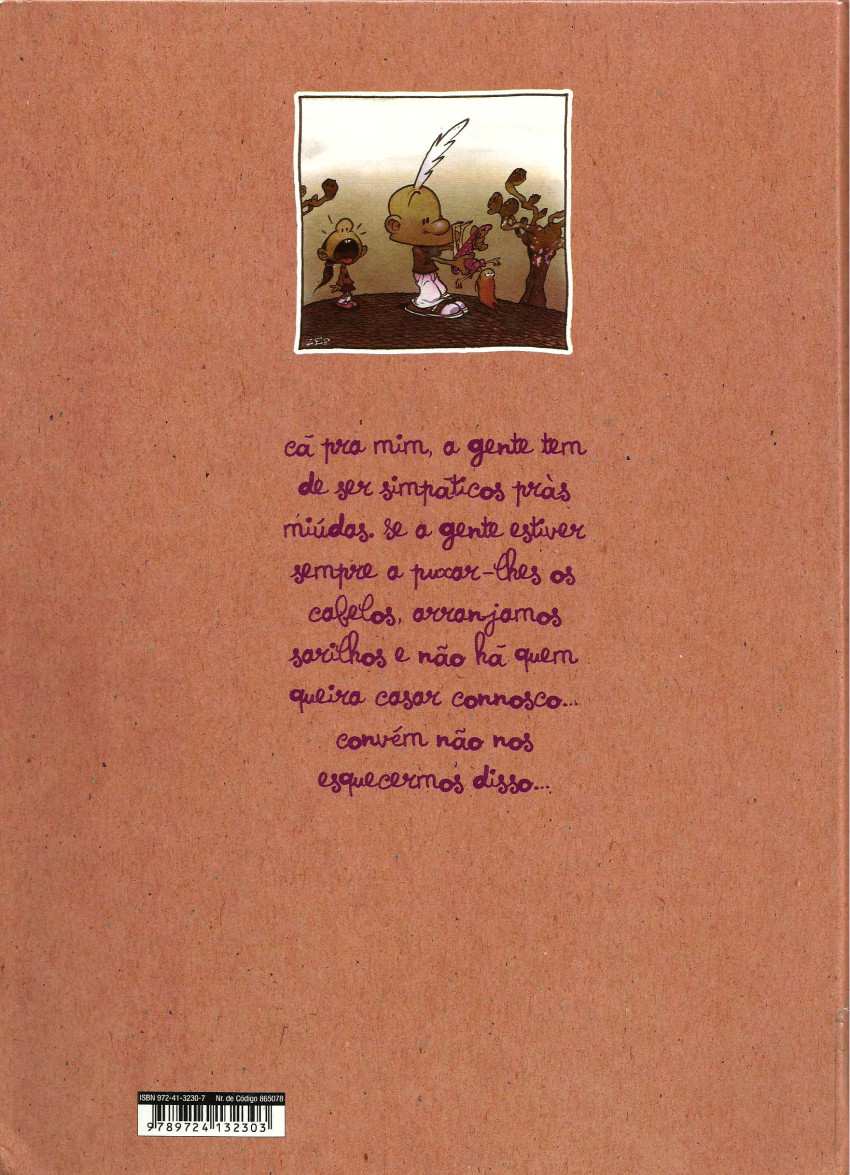 ZEP
cá pra mim, a gente tem
de ser simpáticos pràs
miúdas. se a gente estiver
sempre a puxar-lhes os
cabelos, arranjamos
sarilhos e não há quem
queira casar connosco...
convém não nos
esquecermos disso...
ISBN 972-41-3230-7 Nr. de Código 865078
9789724132303